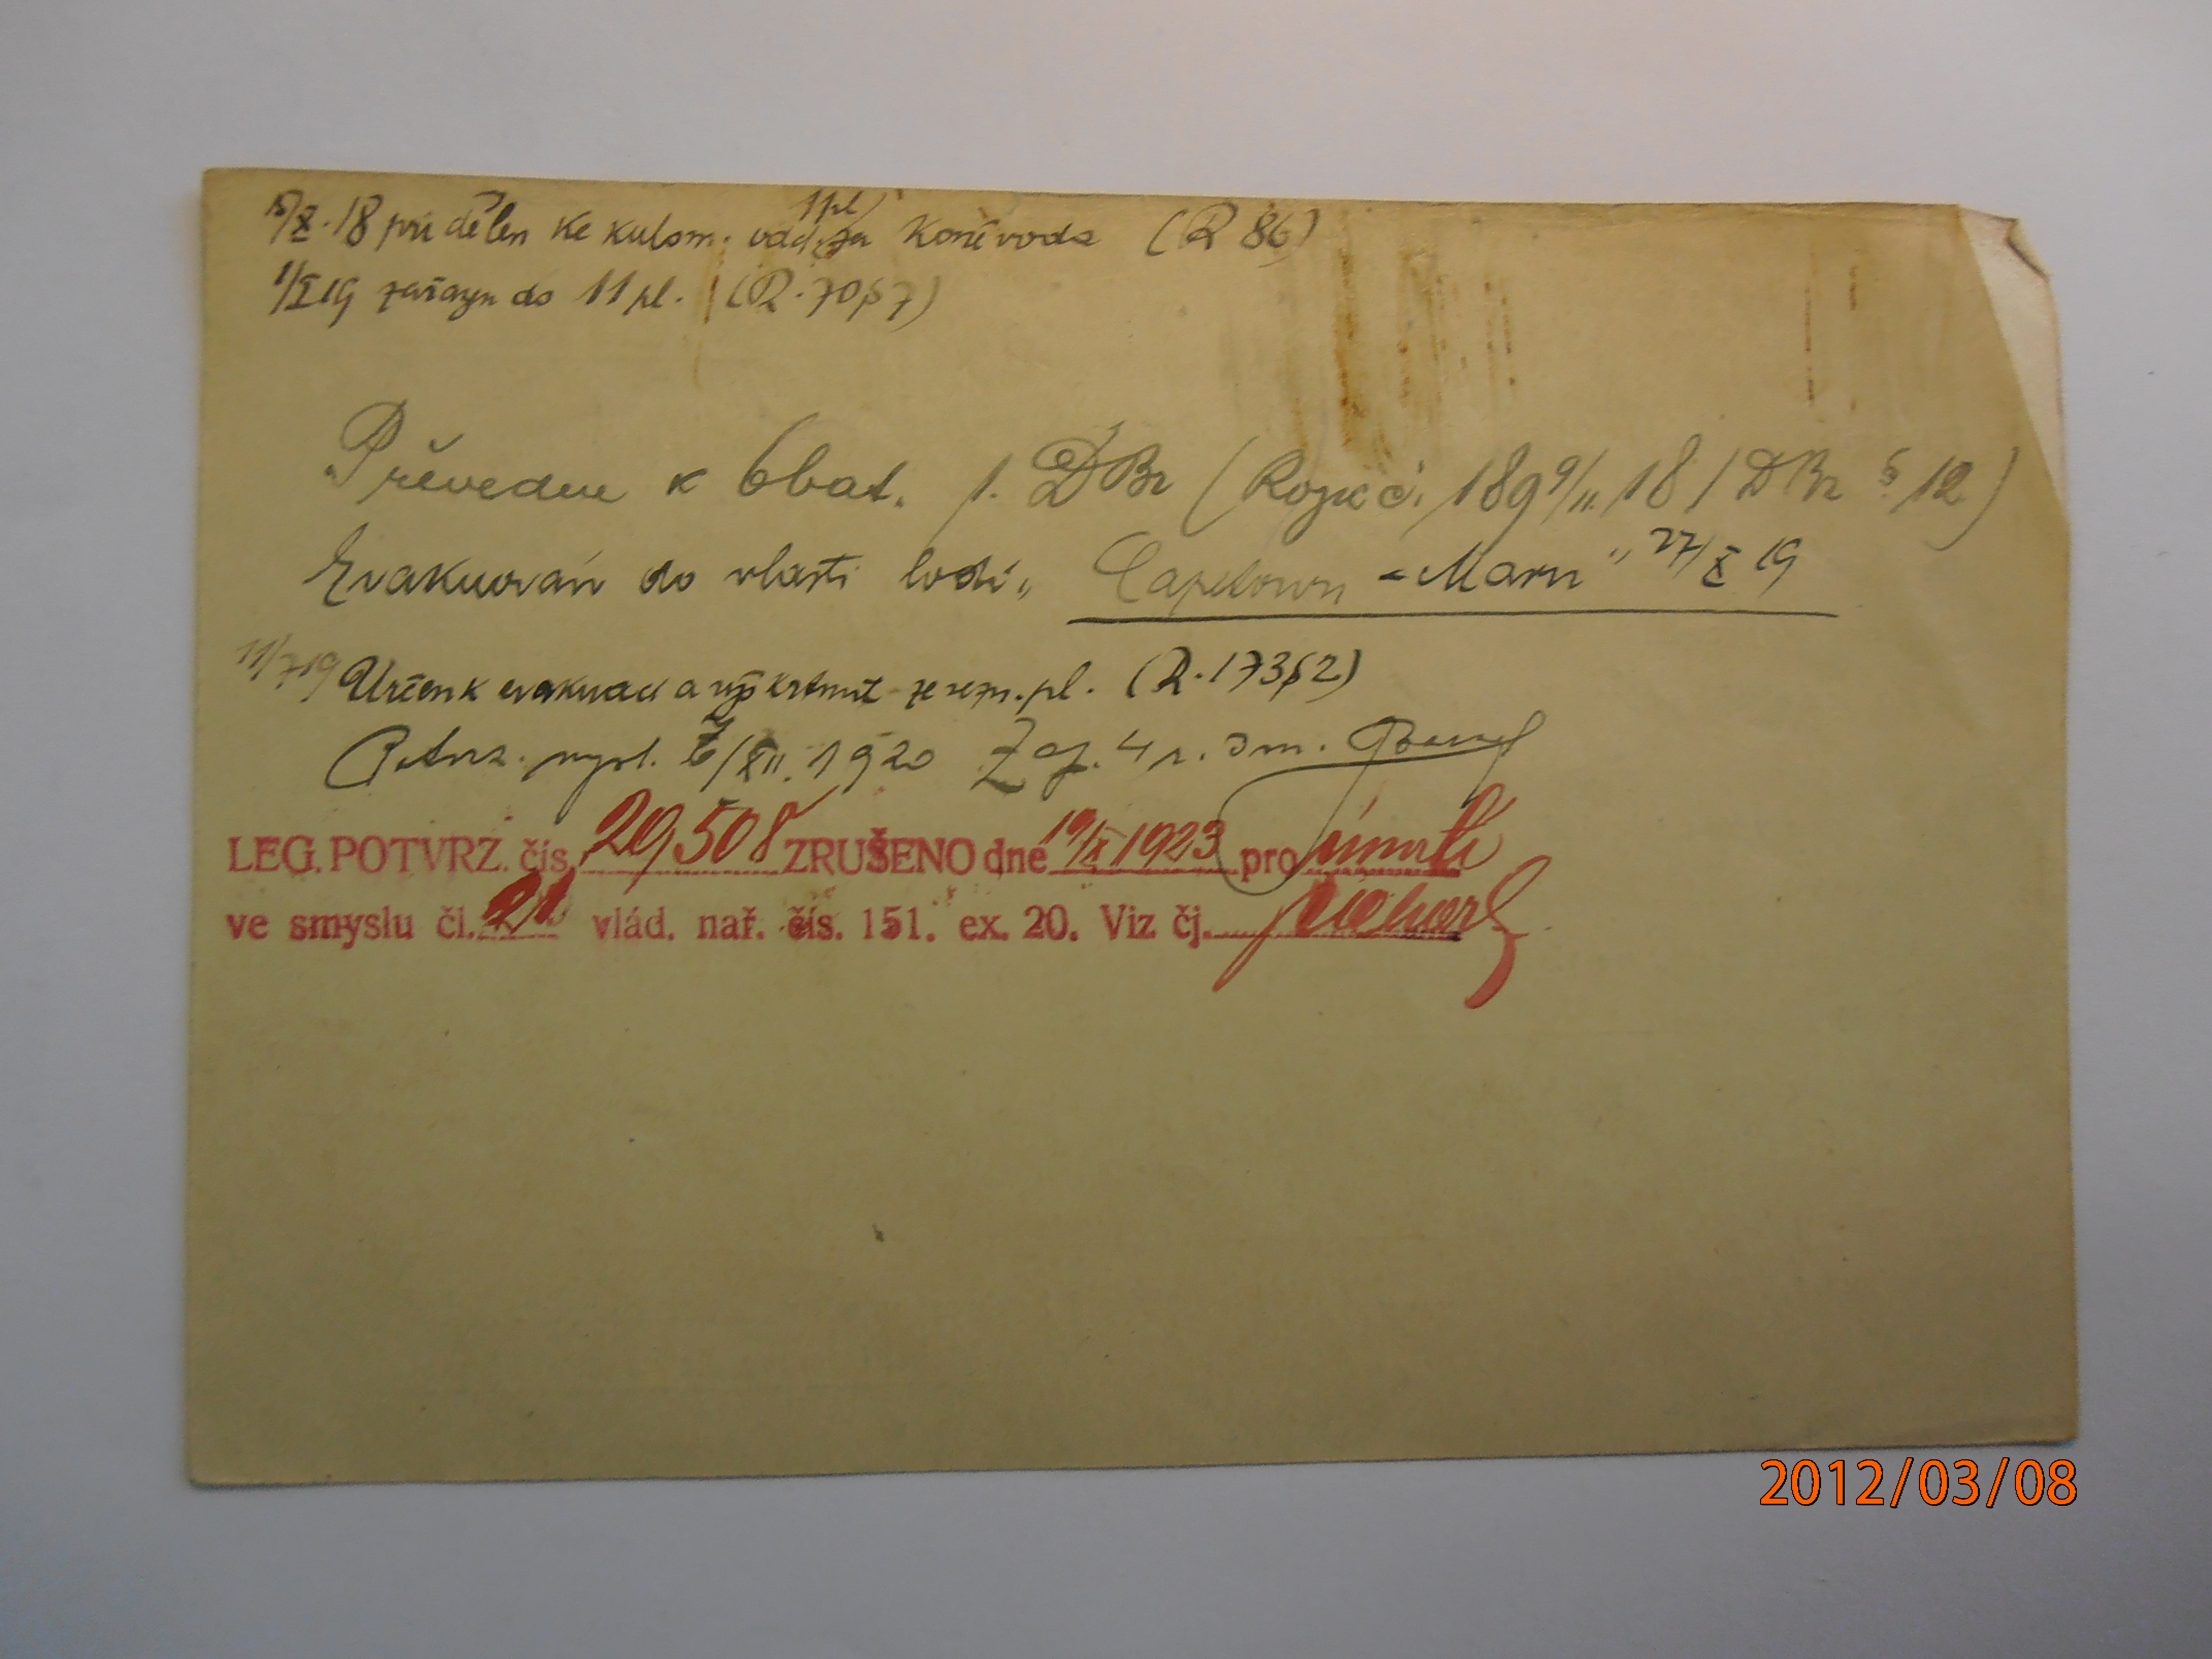 15/X.18 přidělen ke kulom. odd. 11 pl za koněvoda (R 86)
1/I 19 zařazen do 11 pl. (R. 70 § 7)
Převeden k 6 bat. 1. DBr (Rozk č. 189 9/11. 18 / DBr § 12)
Evakuován do vlasti lodí „Capetown - Maru" 27/X 19
11/7 19 Určen k evakuaci a vyškrtnut ze sezn. pl. (R. 173 § 2)
Potvrz. vypl. /XII. 1920 Zap. 4 r. 3 m.
LEG. POTVRZ. čís. 29508 ZRUŠENO dne 19/X 1923 pro úmrtí
ve smyslu čl. 21 vlád. nař. čís. 151. ex. 20. Viz čj.
2012/03/08